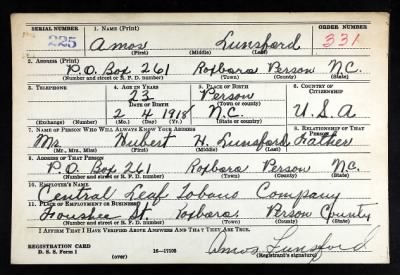 SERIAL NUMBER 1. NAME (Print) ORDER NUMBER
225 Amos Lunsford 331
(First) (Middle) (Last)
2. ADDRESS (Print)
P.O. Box 261 Roxboro Person N.C.
(Number and street or R. F. D. number) (Town) (County) (State)
3. TELEPHONE 4. AGE IN YEARS 5. PLACE OF BIRTH 6. COUNTRY OF CITIZENSHIP
23 Person
DATE OF BIRTH (Town or county)
2 4 1918 N.C. U.S.A
(Exchange) (Number) (Mo.) (Day) (Yr.) (State or country)
7. NAME OF PERSON WHO WILL ALWAYS KNOW YOUR ADDRESS 8. RELATIONSHIP OF THAT PERSON
Mr. Hubert H. Lunsford Father
(Mr., Mrs., Miss) (First) (Middle) (Last)
9. ADDRESS OF THAT PERSON
P.O. Box 261 Roxboro Person N.C.
(Number and street or R. F. D. number) (Town) (County) (State)
10. EMPLOYER'S NAME
Central Leaf Tobacco Company
11. PLACE OF EMPLOYMENT OR BUSINESS
Foushee St. Roxboro. Person County
(Number and street or R. F. D. number) (Town) (County) (State)
I AFFIRM THAT I HAVE VERIFIED ABOVE ANSWERS AND THAT THEY ARE TRUE.
REGISTRATION CARD
D. S. S. Form 1 (over) 16—17105 Amos Lunsford
(Registrant's signature)